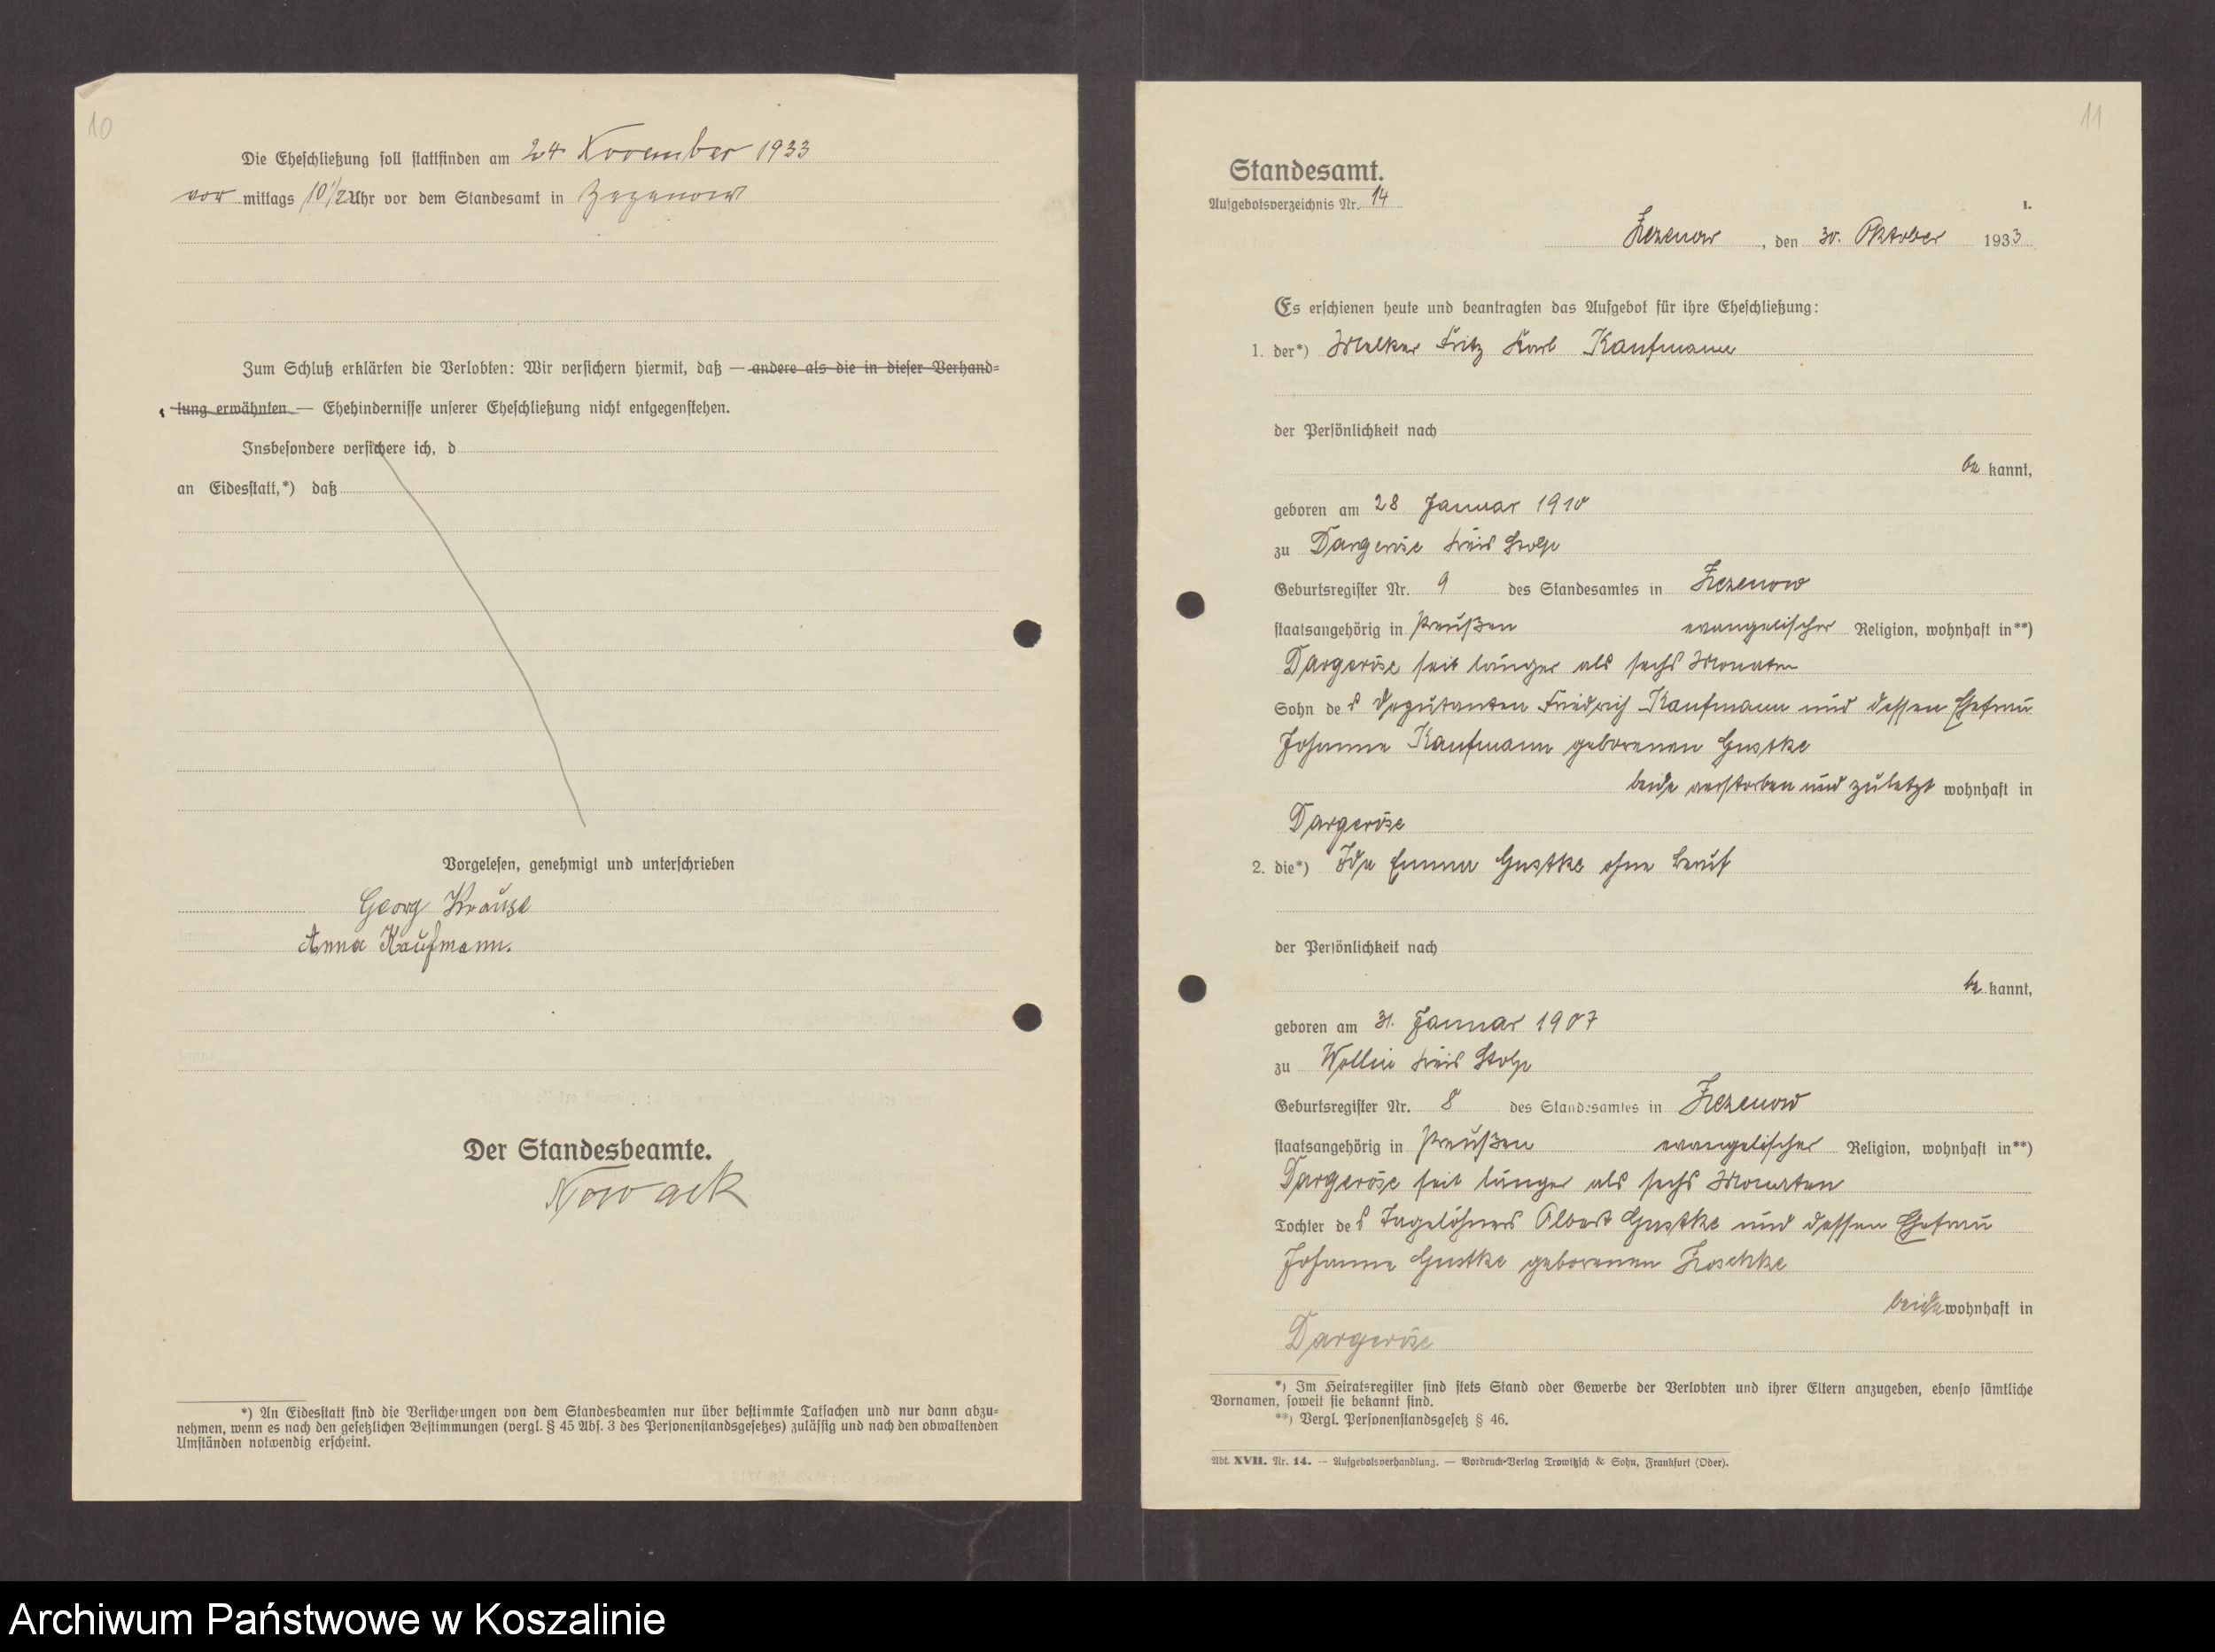 10
Die Eheschließung soll stattfinden am 24 November 1933
vor mittags 10 1/2 Uhr vor dem Standesamt in Zezenow
Zum Schluß erklärten die Verlobten: Wir versichern hiermit, daß — andere als die in dieser Verhand-
lung erwähnten — Ehehindernisse unserer Eheschließung nicht entgegenstehen.
Insbesondere versichere ich, d
an Eidesstatt,*) daß
Vorgelesen, genehmigt und unterschrieben
Georg Krause
Anna Kaufmann.
Der Standesbeamte.
Nowack
*) An Eidesstatt sind die Versicherungen von dem Standesbeamten nur über bestimmte Tatsachen und nur dann abzu-
nehmen, wenn es nach den gesetzlichen Bestimmungen (vergl. § 45 Abs. 3 des Personenstandsgesetzes) zulässig und nach den obwaltenden
Umständen notwendig erscheint.
11
Standesamt.
Aufgebotsverzeichnis Nr. 14
1.
Zezenow, den 30. Oktober 1933
Es erschienen heute und beantragten das Aufgebot für ihre Eheschließung:
1. der*) Melker Fritz Karl Kaufmann
der Persönlichkeit nach
be kannt,
geboren am 28 Januar 1910
zu Dargeröse Kreis Stolp
Geburtsregister Nr. 9 des Standesamtes in Zezenow
staatsangehörig in Preußen evangelischer Religion, wohnhaft in**)
Dargeröse seit länger als sechs Monaten
Sohn des Deputanten Friedrich Kaufmann und dessen Ehefrau
Johanne Kaufmann geborenen Gustke
beide verstorben und zuletzt wohnhaft in
Dargeröse
2. die*) Ida Emma Gustke ohne Beruf
der Persönlichkeit nach
be kannt,
geboren am 31. Januar 1907
zu Wollin Kreis Stolp
Geburtsregister Nr. 8 des Standesamtes in Zezenow
staatsangehörig in Preußen evangelischer Religion, wohnhaft in**)
Dargeröse seit länger als sechs Monaten
Tochter des Tagelöhners Albert Gustke und dessen Ehefrau
Johanne Gustke geborenen Koschke
beide wohnhaft in
Dargeröse
*) Im Heiratsregister sind stets Stand oder Gewerbe der Verlobten und ihrer Eltern anzugeben, ebenso sämtliche
Vornamen, soweit sie bekannt sind.
**) Vergl. Personenstandsgesetz § 46.
Abt. XVII. Nr. 14. — Aufgebotsverhandlung. — Vordruck-Verlag Trowitzsch & Sohn, Frankfurt (Oder).
Archiwum Państwowe w Koszalinie